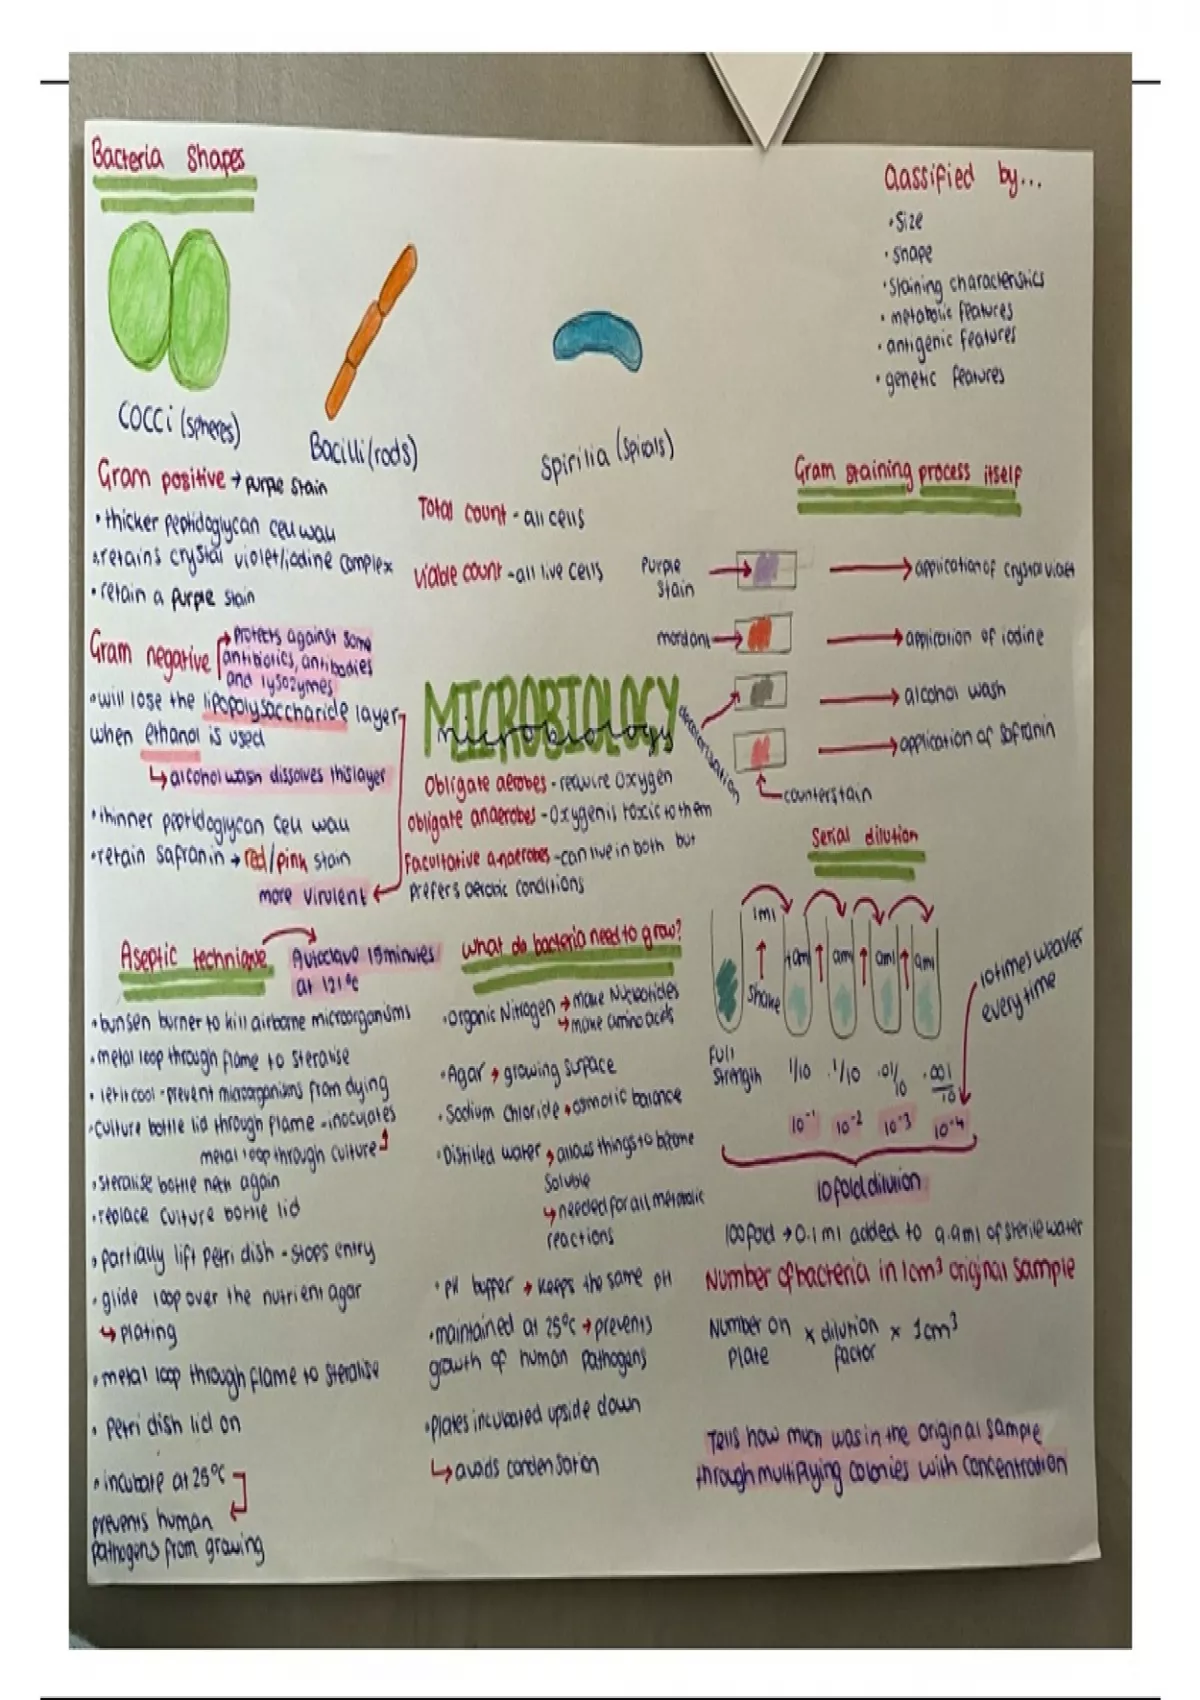 Bacteria Shapes
Cocci (spheres)
Bacilli (rods)
Spirilia (spirals)
Classified by...
• Size
• Shape
• Staining characteristics
• metabolic features
• antigenic features
• genetic features
Gram positive → purple stain
• thicker peptidoglycan cell wall
• retains crystal violet/iodine complex
• retain a purple stain
Gram negative
→ Protects against some
antibiotics, antibodies
and lysozymes
• will lose the lipopolysaccharide layer
when ethanol is used
↳ alcohol wash dissolves this layer
• thinner peptidoglycan cell wall
• retain Safranin → red/pink stain
more virulent
Total count - all cells
Viable count - all live cells
MICROBIOLOGY
microbiology
Obligate aerobes - require Oxygen
Obligate anaerobes - Oxygen is toxic to them
Facultative anaerobes - can live in both but
prefers aerobic conditions
Gram staining process itself
Purple
Stain
application of crystal violet
mordant
application of iodine
decolorisation
alcohol wash
application of safranin
counterstain
Serial dilution
1ml
Shake
Full
Strength
1/10
.1/10
.01/
10
.001
10
10⁻¹
10⁻²
10⁻³
10⁻⁴
10 times weaker
every time
10 fold dilution
100 fold → 0.1ml added to 9.9ml of sterile water
Number of bacteria in 1cm³ original sample
Number on
plate
× dilution
factor
× 1cm³
Tells how much was in the original sample
through multiplying colonies with concentration
Aseptic technique
Autoclave 15 minutes
at 121°C
• bunsen burner to kill airborne microorganisms
• metal loop through flame to steralise
• let it cool - prevent microorganisms from dying
• culture bottle lid through flame - inoculates
metal loop through culture
• steralise bottle neck again
• replace culture bottle lid
• partially lift petri dish - stops entry
• glide loop over the nutrient agar
↳ plating
• metal loop through flame to steralise
• Petri dish lid on
• incubate at 25°C
prevents human
pathogens from growing
What do bacteria need to grow?
• organic Nitrogen → make Nucleotides
↳ make amino acids
• Agar → growing surface
• Sodium chloride → osmotic balance
• Distilled water → allows things to become
Soluble
↳ needed for all metabolic
reactions
• pH buffer → keeps the same pH
• maintained at 25°C → prevents
growth of human pathogens
• plates incubated upside down
↳ avoids condensation